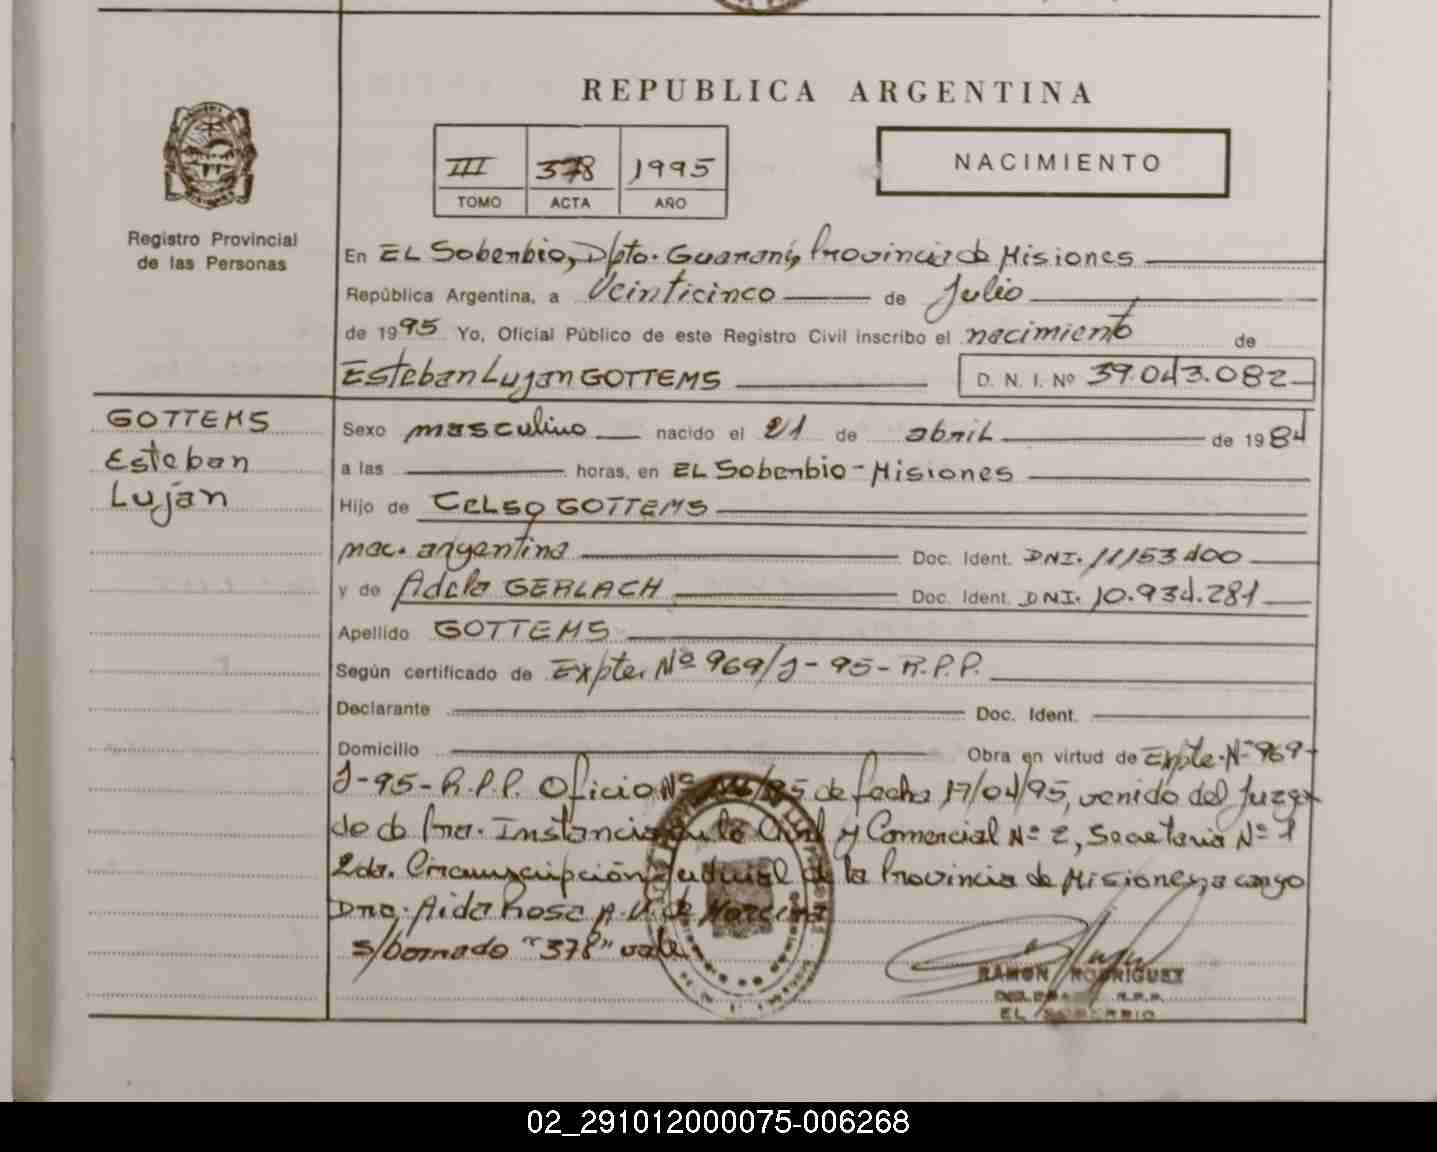 REPUBLICA ARGENTINA
III 378 1995
TOMO ACTA AÑO
NACIMIENTO
Registro Provincial
de las Personas
En EL Soberbio, Dpto. Guaraní, Provincia de Misiones
República Argentina, a Veinticinco de Julio
de 1995 Yo, Oficial Público de este Registro Civil inscribo el nacimiento de
Esteban Lujan GOTTEMS D. N. I. Nº 39.043.082
GOTTEMS
Esteban
Luján
Sexo masculino nacido el 21 de abril de 1984
a las horas, en EL Soberbio - Misiones
Hijo de CELSO GOTTEMS
nac. argentina Doc. Ident. DNI. 11153400
y de Adela GERLACH Doc. Ident. DNI. 10.934.281
Apellido GOTTEMS
Según certificado de Expte. Nº 969/J-95-R.P.P.
Declarante Doc. Ident.
Domicilio Obra en virtud de Expte. Nº 969-
J-95-R.P.P. Oficio Nº /95 de fecha 17/04/95, venido del Juzga
do de Pra. Instancia en lo Civil y Comercial Nº 2, Secretaria Nº 1
2da. Circunscripción Judicial de la Provincia de Misiones, a cargo
Dra. Aida Rosa A. V. de
s/borrado "378" vale
RAMON RODRIGUEZ
R.P.P.
EL SOBERBIO
02_291012000075-006268